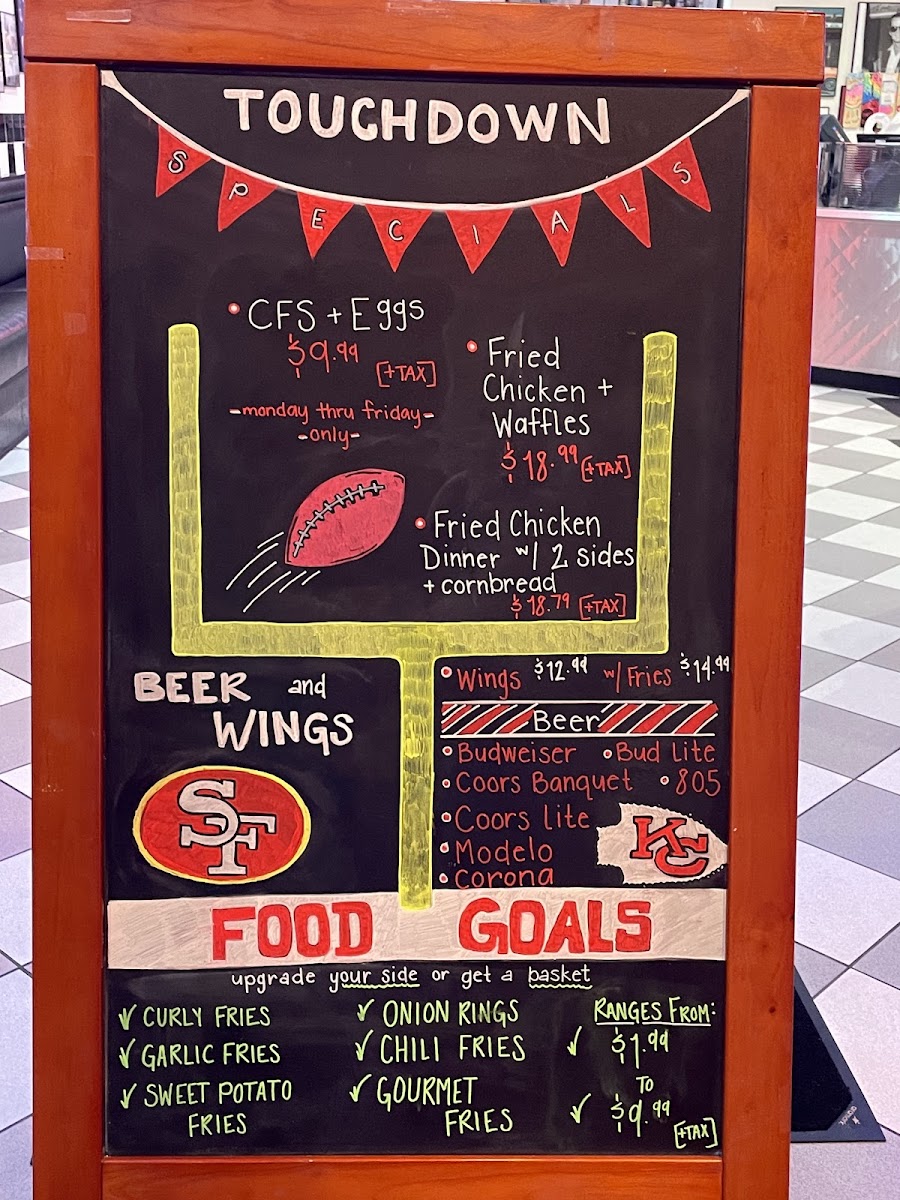 TOUCHDOWN
SPECIALS
• CFS + Eggs
$9.99
[+TAX]
-monday thru friday-
-only-
• Fried
Chicken +
Waffles
$18.99 [+TAX]
• Fried Chicken
Dinner w/ 2 sides
+ cornbread
$18.79 [+TAX]
BEER and
WINGS
• Wings $12.99 w/ Fries $14.99
Beer
• Budweiser • Bud lite
• Coors Banquet • 805
• Coors lite
• Modelo
• Corona
SF
KC
FOOD GOALS
upgrade your side or get a basket
✓ CURLY FRIES
✓ GARLIC FRIES
✓ SWEET POTATO
FRIES
✓ ONION RINGS
✓ CHILI FRIES
✓ GOURMET
FRIES
RANGES FROM:
✓ $1.99
TO
✓ $9.99
[+TAX]